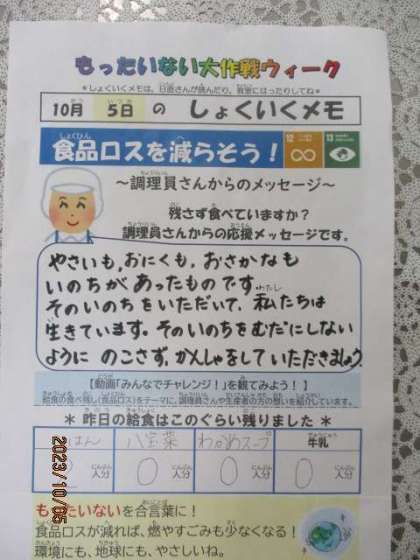 もったいない大作戦ウィーク
＊しょくいくメモは、日直さんが読んだり、教室にはったりしてね＊
10月 5日 の しょくいくメモ
食品ロスを減らそう！
12
13
～調理員さんからのメッセージ～
残さず食べていますか？
調理員さんからの応援メッセージです。
やさいも,おにくも,おさかなも
いのちが あったものです。
そのいのちをいただいて、私たちは
生きています。そのいのちをむだにしない
ように のこさず,かんしゃをしていただきましょう。
【動画「みんなでチャレンジ！」を観てみよう！】
給食の食べ残し(食品ロス)をテーマに、調理員さんや生産者の方の想いを紹介しています。
＊ 昨日の給食はこのぐらい残りました ＊
ごはん 八宝菜 わかめスープ 牛乳
0人分 0人分 0人分 0人分
もったいないを合言葉に！
食品ロスが減れば、燃やすごみも少なくなる！
環境にも、地球にも、やさしいね。
2023/10/05